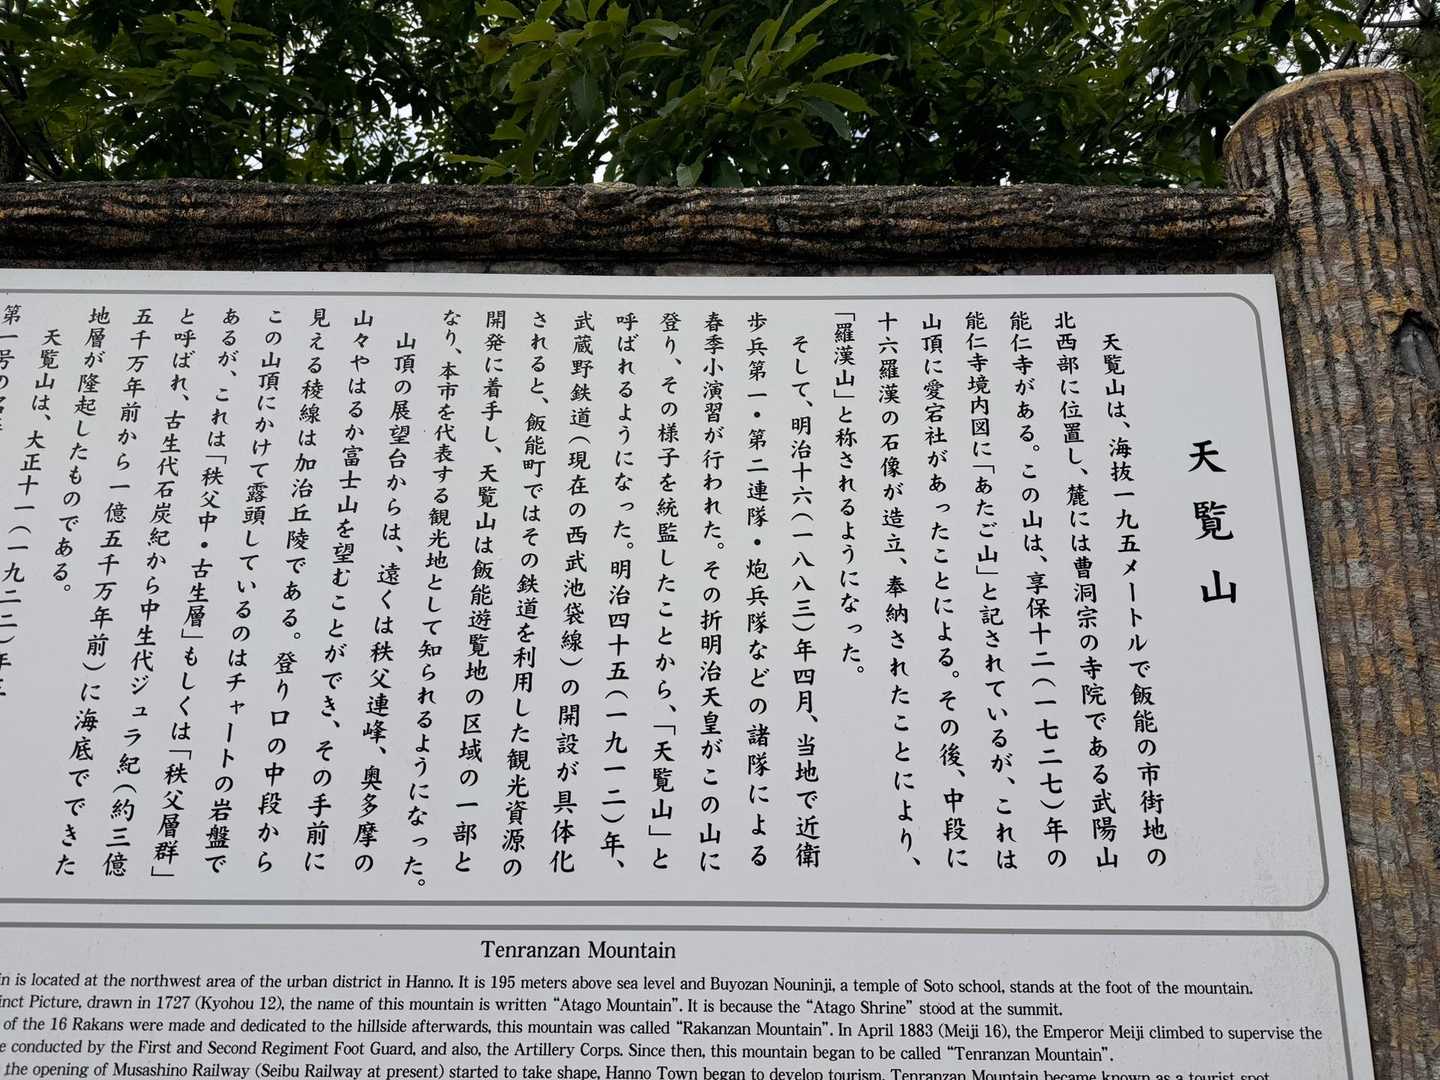 天覧山
天覧山は、海抜一九五メートルで飯能の市街地の
北西部に位置し、麓には曹洞宗の寺院である武陽山
能仁寺がある。この山は、享保十二(一七二七)年の
能仁寺境内図に「あたご山」と記されているが、これは
山頂に愛宕社があったことによる。その後、中段に
十六羅漢の石像が造立、奉納されたことにより、
「羅漢山」と称されるようになった。
そして、明治十六(一八八三)年四月、当地で近衛
歩兵第一・第二連隊・炮兵隊などの諸隊による
春季小演習が行われた。その折明治天皇がこの山に
登り、その様子を統監したことから、「天覧山」と
呼ばれるようになった。明治四十五(一九一二)年、
武蔵野鉄道(現在の西武池袋線)の開設が具体化
されると、飯能町ではその鉄道を利用した観光資源の
開発に着手し、天覧山は飯能遊覧地の区域の一部と
なり、本市を代表する観光地として知られるようになった。
山頂の展望台からは、遠くは秩父連峰、奥多摩の
山々やはるか富士山を望むことができ、その手前に
見える稜線は加治丘陵である。登り口の中段から
この山頂にかけて露頭しているのはチャートの岩盤で
あるが、これは「秩父中・古生層」もしくは「秩父層群」
と呼ばれ、古生代石炭紀から中生代ジュラ紀(約三億
五千万年前から一億五千万年前)に海底でできた
地層が隆起したものである。
天覧山は、大正十一(一九二二)年
第一号の
Tenranzan Mountain
in is located at the northwest area of the urban district in Hanno. It is 195 meters above sea level and Buyozan Nouninji, a temple of Soto school, stands at the foot of the mountain.
inct Picture, drawn in 1727 (Kyohou 12), the name of this mountain is written "Atago Mountain". It is because the "Atago Shrine" stood at the summit.
of the 16 Rakans were made and dedicated to the hillside afterwards, this mountain was called "Rakanzan Mountain". In April 1883 (Meiji 16), the Emperor Meiji climbed to supervise the
e conducted by the First and Second Regiment Foot Guard, and also, the Artillery Corps. Since then, this mountain began to be called "Tenranzan Mountain".
the opening of Musashino Railway (Seibu Railway at present) started to take shape, Hanno Town began to develop tourism. Tenranzan Mountain became known as a tourist spot